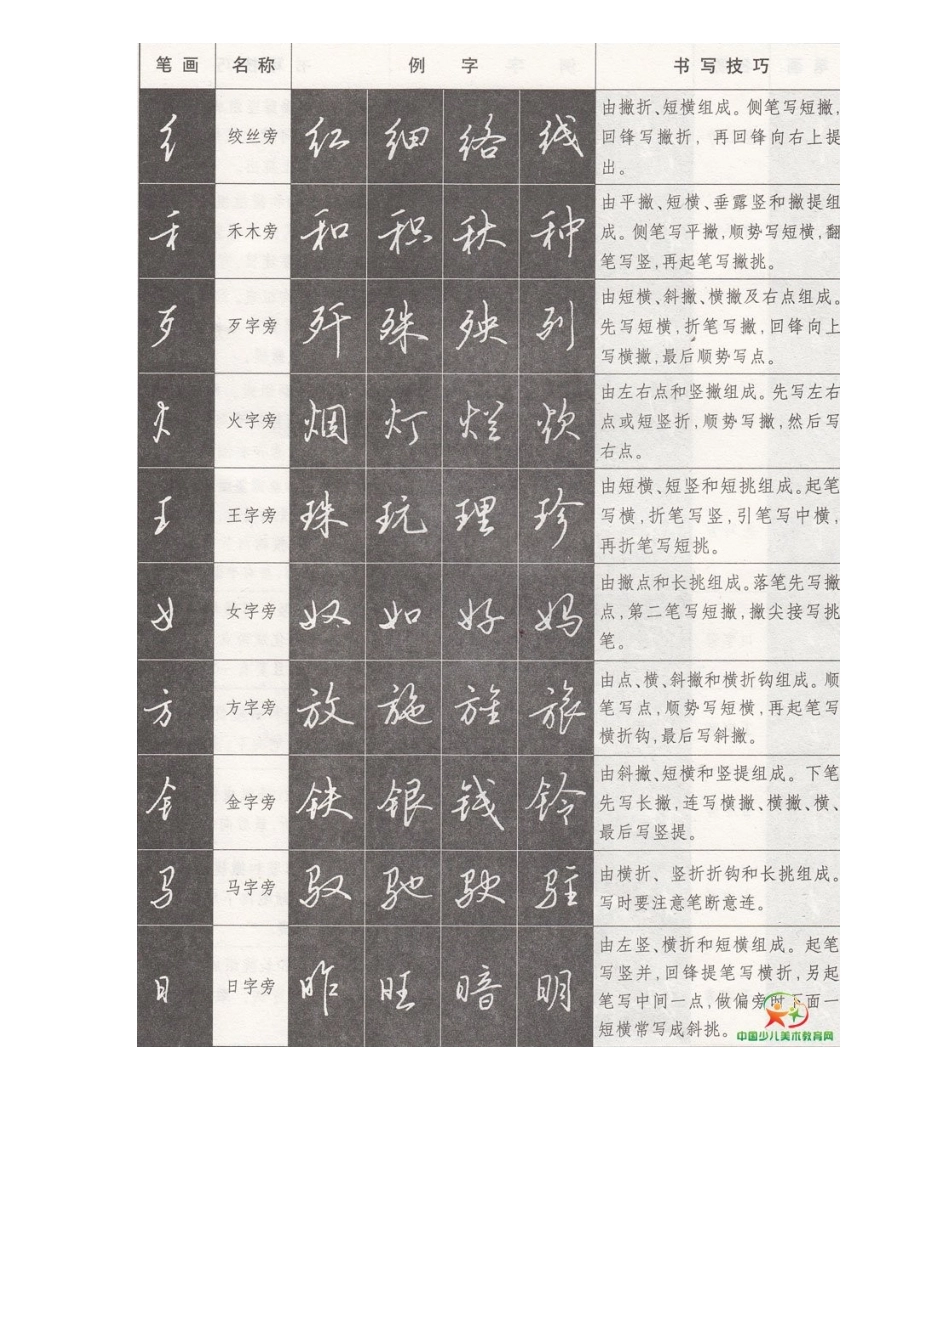 笔画 名称 例字 书写技巧
纟 绞丝旁 红 细 络 线 由撇折、短横组成。侧笔写短撇,
回锋写撇折, 再回锋向右上提
出。
禾 禾木旁 和 积 秋 种 由平撇、短横、垂露竖和撇提组
成。侧笔写平撇,顺势写短横,翻
笔写竖,再起笔写撇挑。
歹 歹字旁 歼 殊 殃 列 由短横、斜撇、横撇及右点组成。
先写短横,折笔写撇,回锋向上
写横撇,最后顺势写点。
火 火字旁 烟 灯 烂 炊 由左右点和竖撇组成。先写左右
点或短竖折,顺势写撇,然后写
右点。
王 王字旁 珠 玩 理 珍 由短横、短竖和短挑组成。起笔
写横,折笔写竖,引笔写中横,
再折笔写短挑。
女 女字旁 奴 如 好 妈 由撇点和长挑组成。落笔先写撇
点,第二笔写短撇,撇尖接写挑
笔。
方 方字旁 放 施 旌 旅 由点、横、斜撇和横折钩组成。顺
笔写点,顺势写短横,再起笔写
横折钩,最后写斜撇。
钅 金字旁 铁 银 钱 铃 由斜撇、短横和竖提组成。下笔
先写长撇,连写横撇、横撇、横、
最后写竖提。
马 马字旁 驭 驰 驶 驻 由横折、竖折折钩和长挑组成。
写时要注意笔断意连。
日 日字旁 昨 旺 暗 明 由左竖、横折和短横组成。起笔
写竖并,回锋提笔写横折,另起
笔写中间一点,做偏旁时下面一
短横常写成斜挑。
中国少儿美术教育网